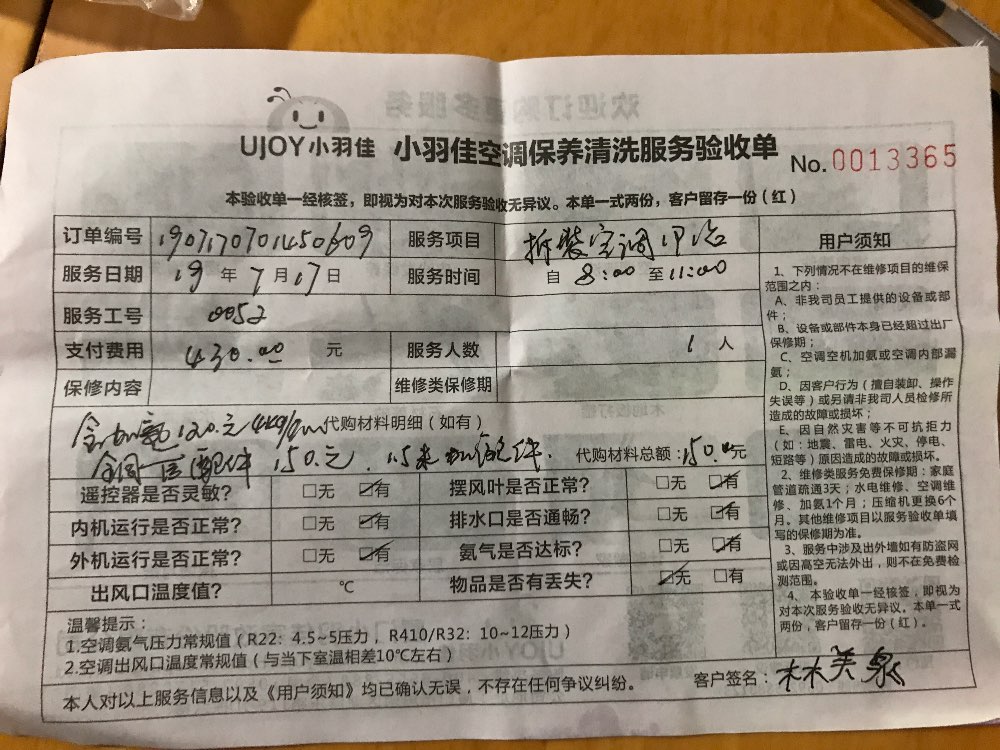 欢迎订购更多服务
UJOY小羽佳 小羽佳空调保养清洗服务验收单 No.0013365
本验收单一经核签，即视为对本次服务验收无异议。本单一式两份，客户留存一份（红）
订单编号 190717701450609 服务项目 拆装空调
服务日期 19 年 7 月 17 日 服务时间 自 8:00 至 11:00
服务工号 0052
支付费用 430.00 元 服务人数 1 人
保修内容 维修类保修期
120.元 代购材料明细（如有）
配件 150.元 . 1.5米 配件. 代购材料总额：150.00元
遥控器是否灵敏？ □无 ☑有 摆风叶是否正常？ □无 ☑有
内机运行是否正常？ □无 ☑有 排水口是否通畅？ □无 ☑有
外机运行是否正常？ □无 ☑有 氨气是否达标？ □无 ☑有
出风口温度值？ ℃ 物品是否有丢失？ ☑无 □有
温馨提示：
1.空调氨气压力常规值（R22：4.5~5压力，R410/R32：10~12压力）
2.空调出风口温度常规值（与当下室温相差10℃左右）
本人对以上服务信息以及《用户须知》均已确认无误，不存在任何争议纠纷。 客户签名：林美泉
用户须知
1、下列情况不在维修项目的维保
范围之内：
A、非我司员工提供的设备或部
件；
B、设备或部件本身已经超过出厂
保修期；
C、空调空机加氨或空调内部漏
氨；
D、因客户行为（擅自装卸、操作
失误等）或另请非我司人员检修所
造成的故障或损坏；
E、因自然灾害等不可抗拒力
（如：地震、雷电、火灾、停电、
短路等）原因造成的故障或损坏。
2、维修类服务免费保修期：家庭
管道疏通3天；水电维修、空调维
修、加氨1个月；压缩机更换6个
月。其他维修项目以服务验收单填
写的保修期为准。
3、服务中涉及出外墙如有防盗网
或因高空无法外出，则不在免费检
测范围。
4、本验收单一经核签，即视为
对本次服务验收无异议。本单一式
两份，客户留存一份（红）。